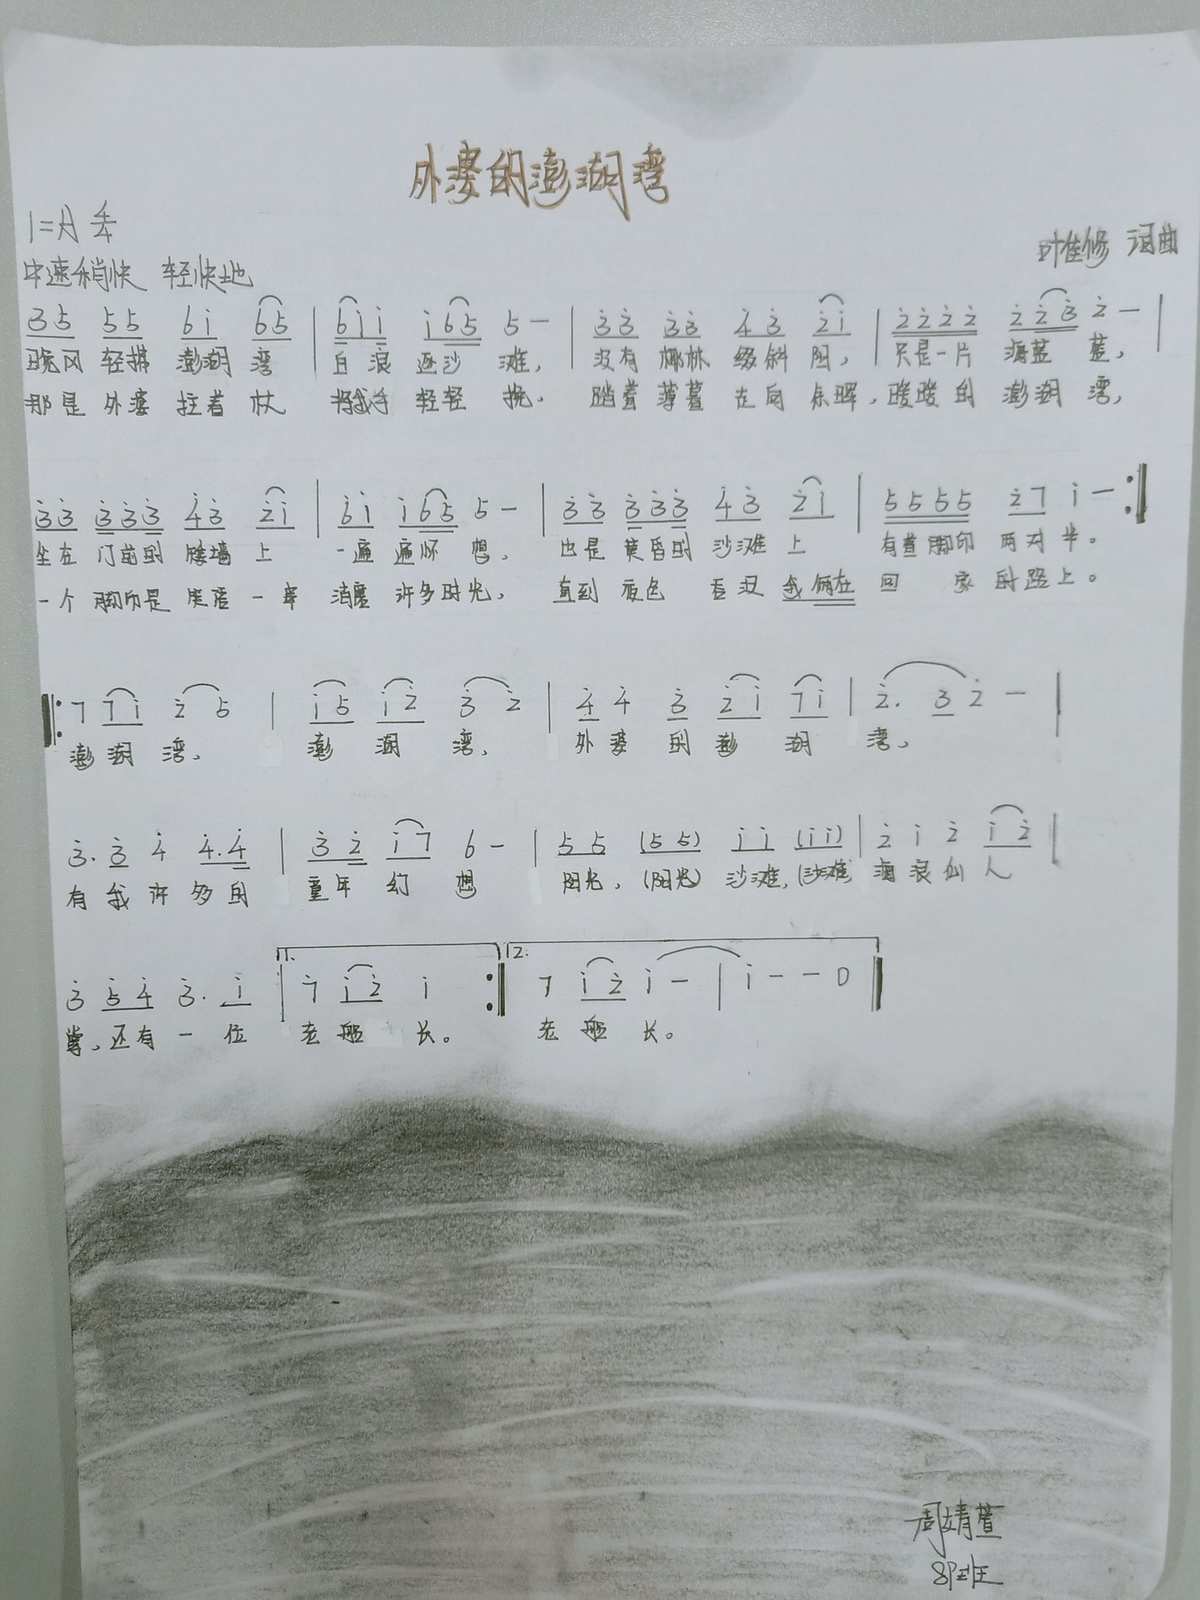 外婆的澎湖湾
1=A 4/4
叶佳修 词曲
中速稍快 轻快地
35 55 6i 65 | 6ii i65 5- | 3̇3̇ 3̇3̇ 4̇3̇ 2̇i | 2̇2̇2̇2̇ 2̇2̇3̇ 2̇- |
晚风 轻拂 澎湖 湾 白浪 逐沙 滩, 没有 椰林 缀斜 阳, 只是一片 海蓝 蓝,
那是 外婆 拄着 杖 将我手 轻轻 挽. 踏着 薄暮 走向 余晖, 暖暖的 澎湖 湾,
3̇3̇ 3̇3̇3̇ 4̇3̇ 2̇i | 6i i65 5- | 3̇3̇ 3̇3̇3̇ 4̇3̇ 2̇i | 5555 2̇7 i- :|
坐在 门前的 矮墙 上 一遍 遍怀 想. 也是 黄昏的 沙滩 上 有着脚印 两对 半。
一个 脚印是 笑语 一串 消磨 许多时光, 直到 夜色 吞没 我俩在 回 家的路上。
|: 7 7i 2̇ 5 | i5 i2̇ 3̇ 2̇ | 4̇ 4̇ 3̇ 2̇i 7i | 2̇. 3̇ 2̇ - |
澎湖 湾, 澎 湖 湾, 外婆 的澎 湖 湾,
3̇. 3̇ 4̇ 4̇.4̇ | 3̇2̇ i7 6- | 55 (55) ii (ii) | 2̇ i 2̇ i2̇ |
有我许多的 童年 幻 想 阳光, (阳光) 沙滩, (沙滩) 海浪仙人
3̇ 5̇4̇ 3̇. i | 1. 7 i2̇ i :| 2. 7 i2̇ i- | i--0 |
掌, 还有一位 老船 长。 老船 长。
周婧萱
8班